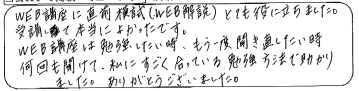 WEB講座に直前模試(WEB解説)とても役に立ちました。
受講して本当によかったです。
WEB講座は勉強したい時、もう一度聞き直したい時
何回も聞けて、私にすごく合っている勉強方法で助かり
ました。ありがとうございました。